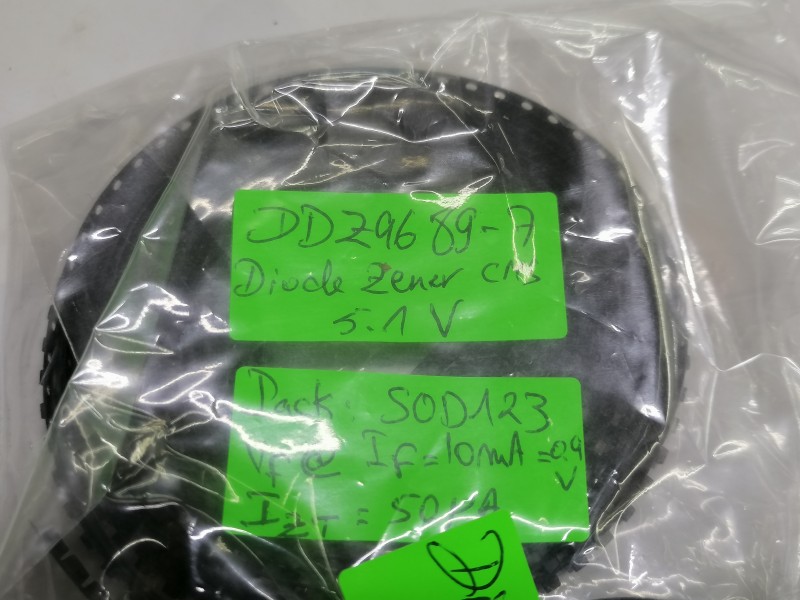 DDZ9689-7
Diode Zener CMS
5.1 V
Pack: SOD123
VF @ IF = 10mA = 0.9 V
IZT = 50 µA